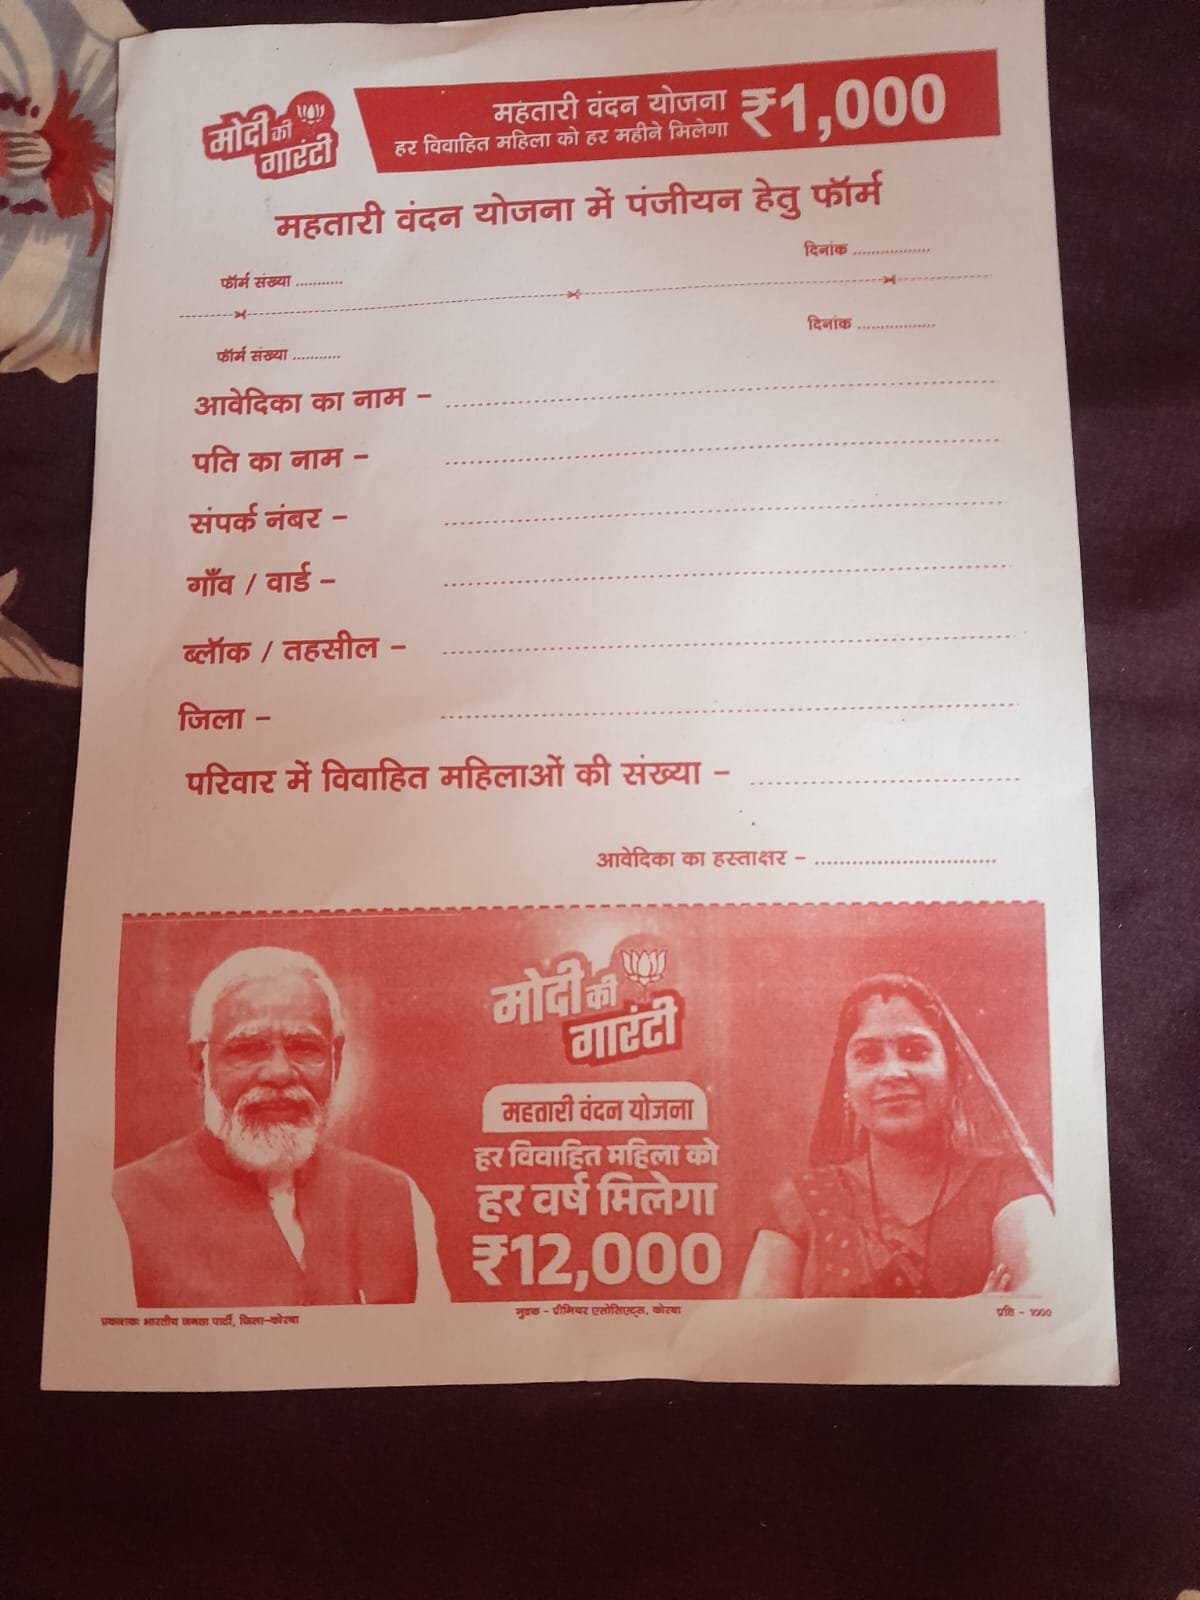 मोदी की
गारंटी
महतारी वंदन योजना
हर विवाहित महिला को हर महीने मिलेगा
₹1,000
महतारी वंदन योजना में पंजीयन हेतु फॉर्म
दिनांक .................
फॉर्म संख्या ...........
दिनांक .................
फॉर्म संख्या ...........
आवेदिका का नाम –
पति का नाम –
संपर्क नंबर –
गाँव / वार्ड –
ब्लॉक / तहसील –
जिला –
परिवार में विवाहित महिलाओं की संख्या –
आवेदिका का हस्ताक्षर – .............................
मोदी की
गारंटी
महतारी वंदन योजना
हर विवाहित महिला को
हर वर्ष मिलेगा
₹12,000
प्रकाशकः भारतीय जनता पार्टी, जिला-कोरबा
मुद्रक - प्रीमियर एसोसिएट्स, कोरबा
प्रति - 1000